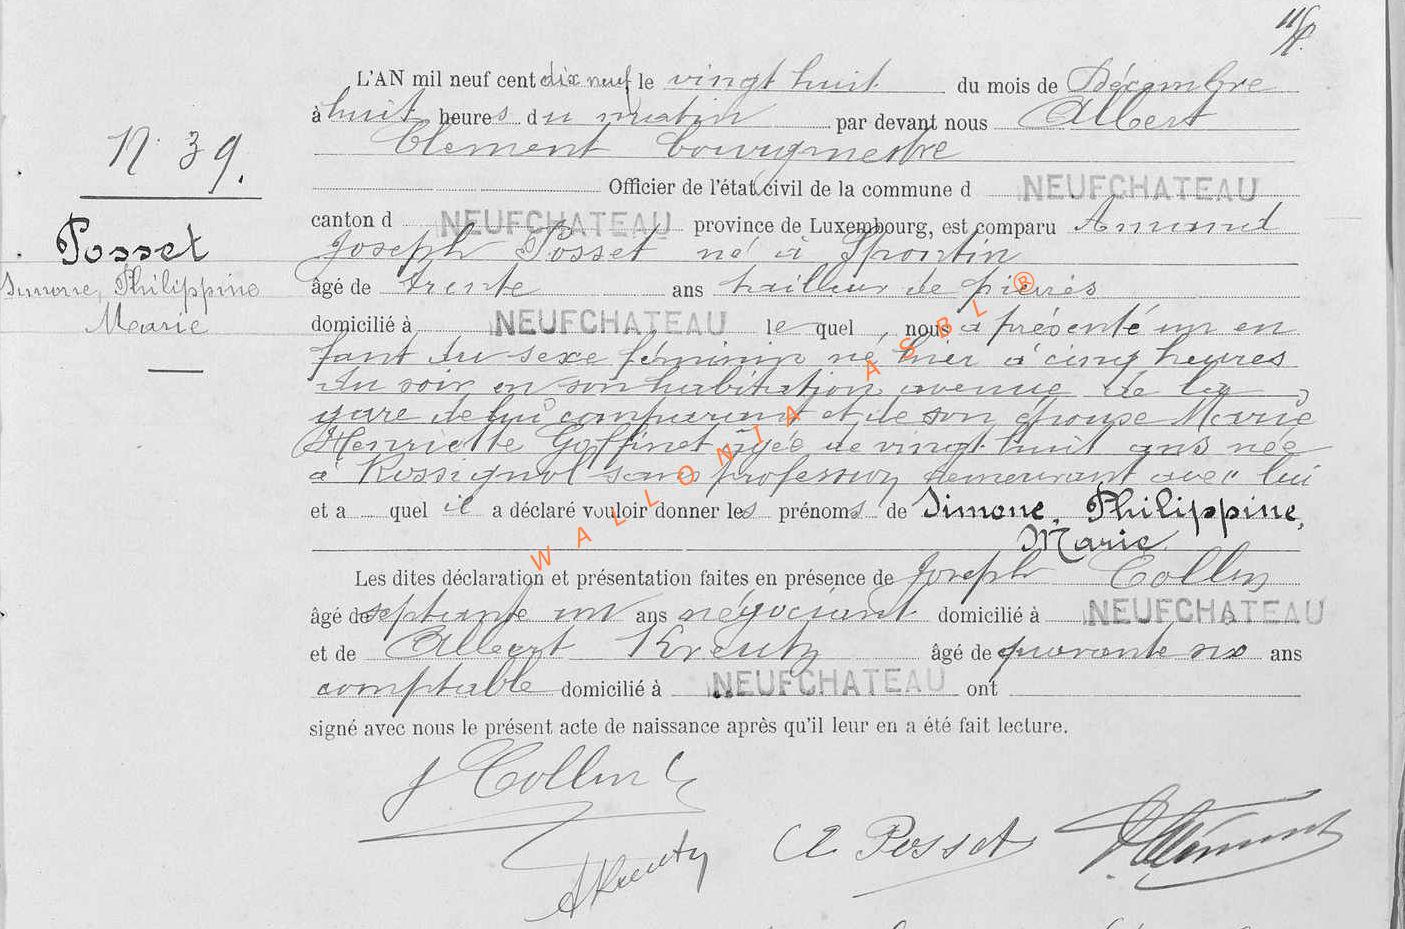 N° 39.
Posset
Simone, Philippine
Marie
L'AN mil neuf cent dix neuf le vingt huit du mois de Décembre
à huit heures du matin par devant nous Albert
Clément bourgmestre
Officier de l'état civil de la commune d NEUFCHATEAU
canton d NEUFCHATEAU province de Luxembourg, est comparu Armand
Joseph Posset né à Spontin
âgé de trente ans tailleur de pierres
domicilié à NEUFCHATEAU le quel, nous a présenté un en
fant du sexe féminin né hier à cinq heures
du soir en son habitation avenue de la
gare de lui comparant et de son épouse Marie
Henriette Goffinet âgée de vingt huit ans née
à Rossignol sans profession demeurant avec lui
et a quel il a déclaré vouloir donner les prénoms de Simone, Philippine,
Marie
Les dites déclaration et présentation faites en présence de Joseph Collin
âgé de septante un ans négociant domicilié à NEUFCHATEAU
et de Albert Kreutz âgé de quarante six ans
comptable domicilié à NEUFCHATEAU ont
signé avec nous le présent acte de naissance après qu'il leur en a été fait lecture.
J Collin
AKreutz
A Posset
A Clément
WALLONIA ASBL ®